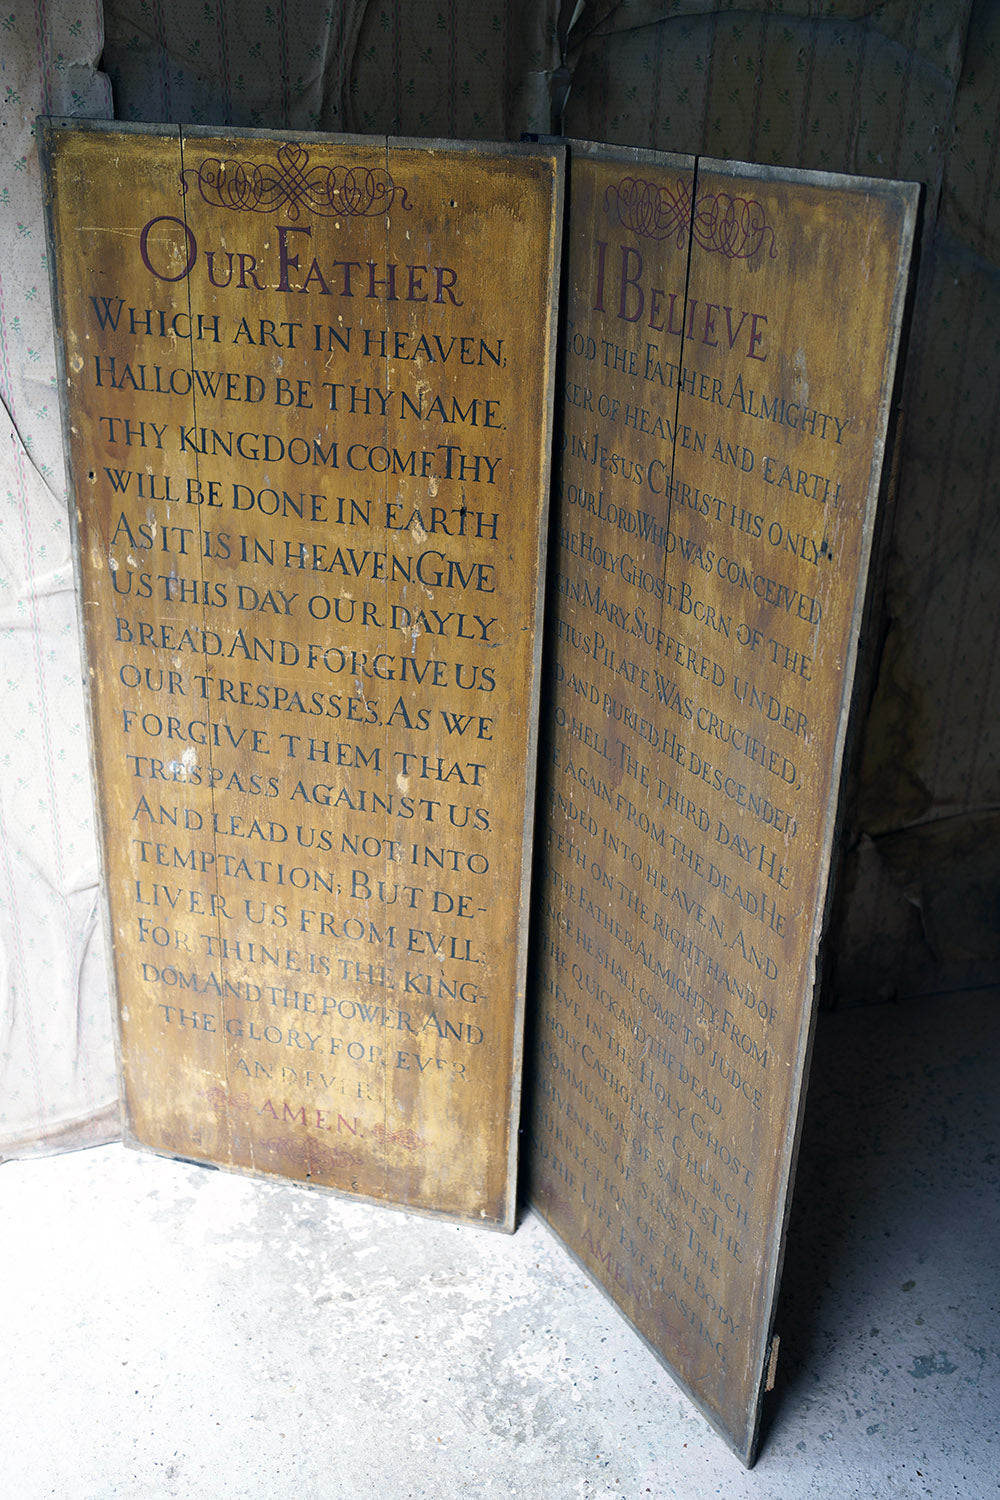 OUR FATHER
WHICH ART IN HEAVEN;
HALLOWED BE THY NAME.
THY KINGDOM COME. THY
WILL BE DONE IN EARTH
AS IT IS IN HEAVEN. GIVE
US THIS DAY OUR DAYLY
BREAD. AND FORGIVE US
OUR TRESPASSES, AS WE
FORGIVE THEM THAT
TRESPASS AGAINST US.
AND LEAD US NOT INTO
TEMPTATION; BUT DE-
LIVER US FROM EVLL:
FOR THINE IS THE KING-
DOM AND THE POWER AND
THE GLORY, FOR EVER
AND EVER.
AMEN.
I BELIEVE
GOD THE FATHER ALMIGHTY
KER OF HEAVEN AND EARTH
IN JESUS CHRIST HIS ONLY
OUR LORD, WHO WAS CONCEIVED
HE HOLY GHOST, BORN OF THE
GIN MARY, SUFFERED UNDER
TIUS PILATE, WAS CRUCIFIED,
D AND BURIED, HE DESCENDED
O HELL, THE THIRD DAY HE
E AGAIN FROM THE DEAD HE
ENDED INTO HEAVEN, AND
TETH ON THE RIGHT HAND OF
THE FATHER ALMIGHTY. FROM
NCE HE SHALL COME TO JUDGE
THE QUICK AND THE DEAD.
LIEVE IN THE HOLY GHOST.
HOLY CATHOLICK CHURCH
COMMUNION OF SAINTS THE
GIVENESS OF SINS. THE
URRECTION OF THE BODY.
D THE LIFE EVERLASTING.
AMEN